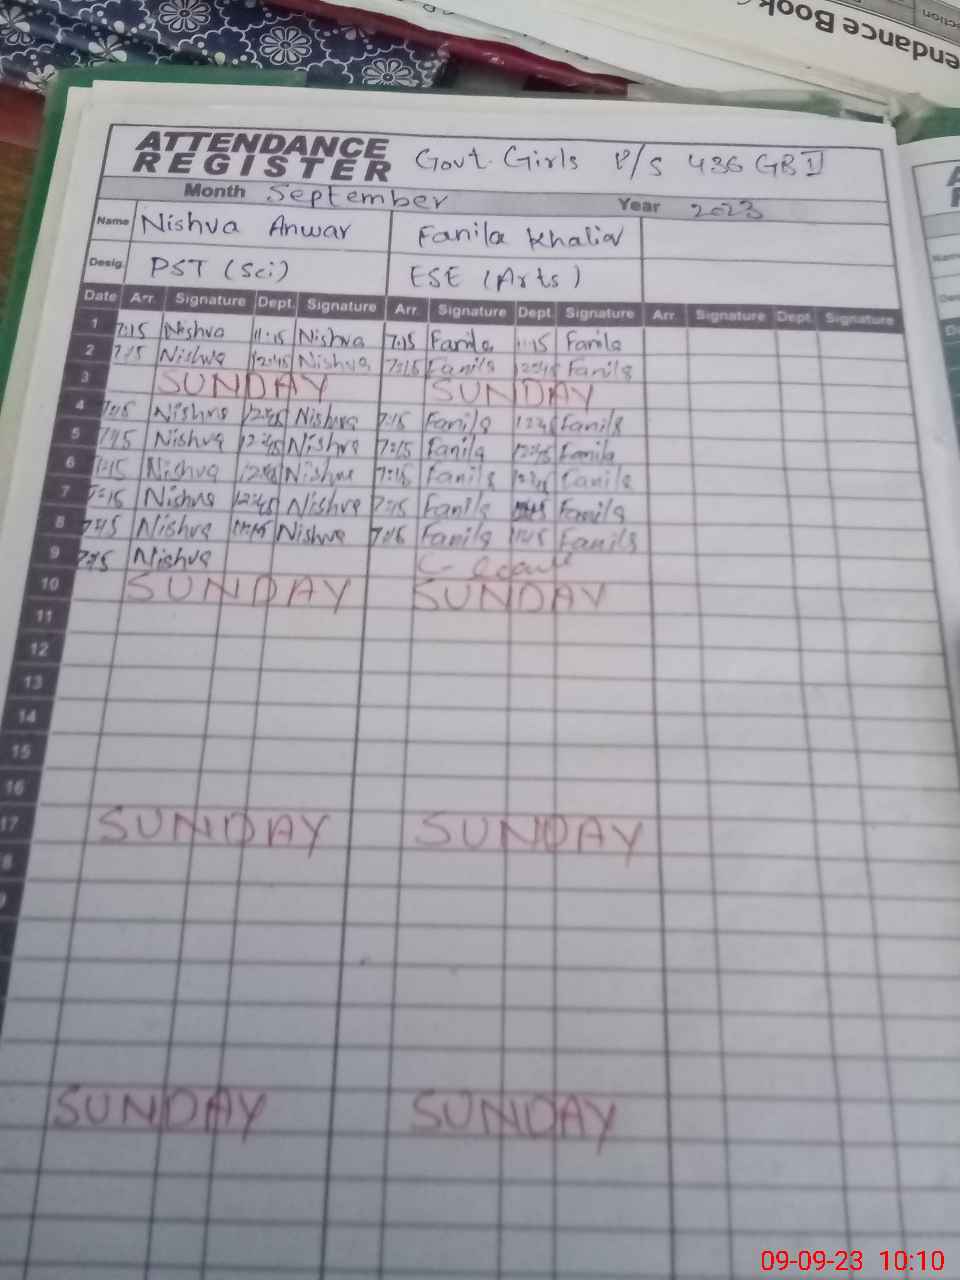 endance Book
ction
ATTENDANCE
REGISTER
Govt. Girls P/S 436 GB II
Month September Year 2023
Name Nishva Anwar Fanila Khaliq
Desig. PST (Sci) ESE (Arts)
Date Arr. Signature Dept. Signature Arr. Signature Dept. Signature Arr. Signature Dept. Signature
1 7:15 Nishva 11:15 Nishva 7:15 Fanila 11:15 Fanila
2 7:15 Nishva 12:45 Nishva 7:15 Fanila 12:45 Fanila
3 SUNDAY SUNDAY
4 7:15 Nishva 12:45 Nishva 7:15 Fanila 12:45 Fanila
5 7:15 Nishva 12:45 Nishva 7:15 Fanila 12:45 Fanila
6 7:15 Nishva 12:45 Nishva 7:15 Fanila 12:45 Fanila
7 7:15 Nishva 12:45 Nishva 7:15 Fanila Fanila
8 7:15 Nishva 11:15 Nishva 7:15 Fanila 11:15 Fanila
9 7:15 Nishva
10 SUNDAY SUNDAY
11
12
13
14
15
16
17 SUNDAY SUNDAY
SUNDAY SUNDAY
09-09-23 10:10